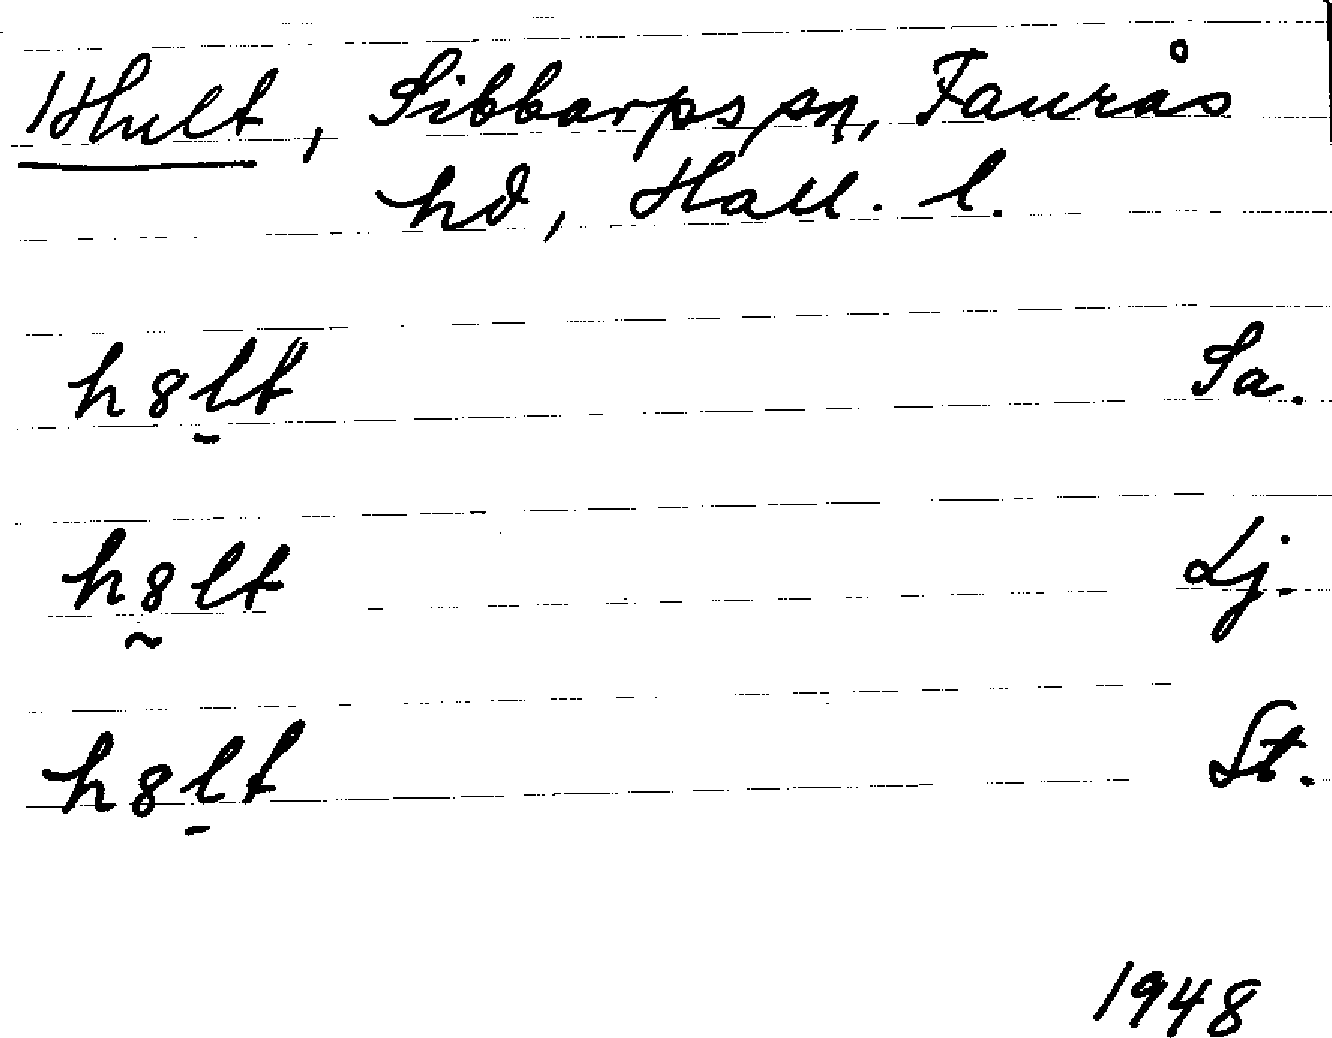 Hult, Sibbarps sn, Faurås
hd, Hall. l.
h8l̠t Sa.
h8̰lt Lj.
h8l̠t St.
1948